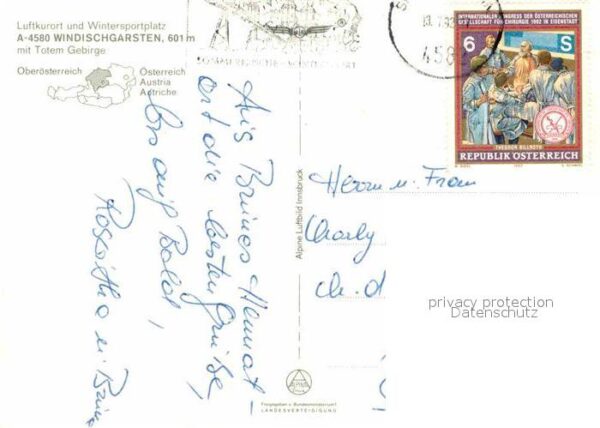 Luftkurort und Wintersportplatz
A-4580 WINDISCHGARSTEN, 601 m
mit Totem Gebirge
Oberösterreich
Österreich
Austria
Autriche
Aus Brunos Heimat-
ort die besten Grüße,
bis auf Bald,
Roswitha u. Bruno
Alpine Luftbild Innsbruck
Freigegeben v. Bundesministerium f.
LANDESVERTEIDIGUNG
458
INTERNATIONALER KONGRESS DER ÖSTERREICHISCHEN
GESELLSCHAFT FÜR CHIRURGIE 1992 IN EISENSTADT
6 S
THEODOR BILLROTH
REPUBLIK ÖSTERREICH
1992
Herrn u. Frau
Charly
privacy protection
Datenschutz